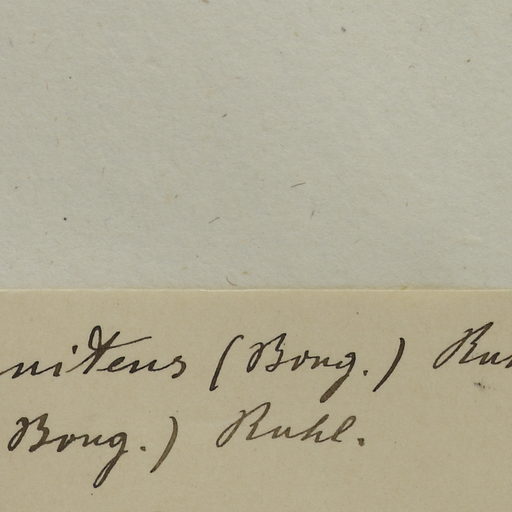 nitens (Bong.) Ruh
Bong.) Ruhl.